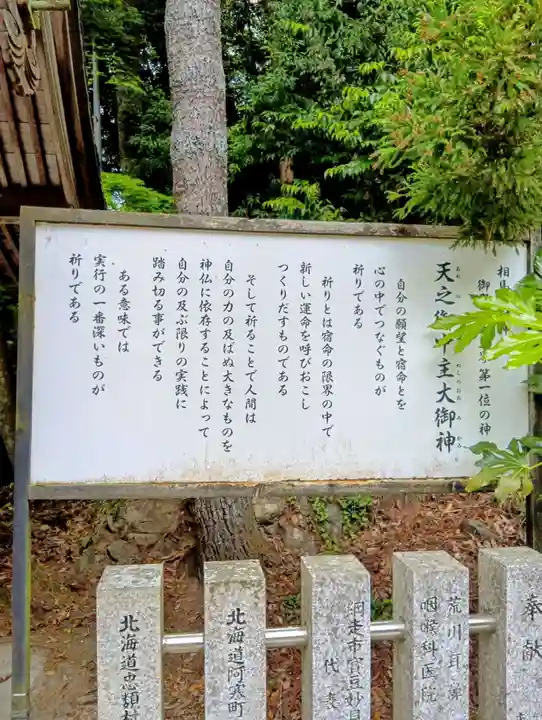 相馬
御 第一位の神
天之 中主大御神
自分の願望と宿命とを
心の中でつなぐものが
祈りである
祈りとは宿命の限界の中で
新しい運命を呼びおこし
つくりだすものである
そして祈ることで人間は
自分の力の及ばぬ大きなものを
神仏に依存することによって
自分の及ぶ限りの実践に
踏み切る事ができる
ある意味では
実行の一番深いものが
祈りである
奉献
荒川耳鼻
咽喉科医院
網走市
代表
北海道阿寒町
北海道忠類村